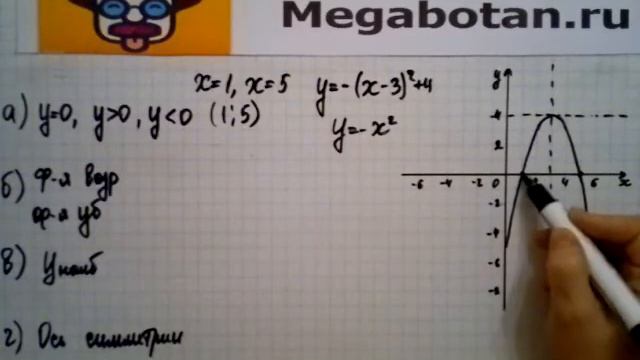 Megabotan.ru
x=1, x=5
y=-(x-3)²+4
а) y=0, y>0, y<0 (1;5)
y=-x²
б) ф-я возр
ф-я уб
в) Yнаиб
г) Ось симметрии
y
4
2
-6 -4 -2 0 4 6 x
-2
-4
-6
-8